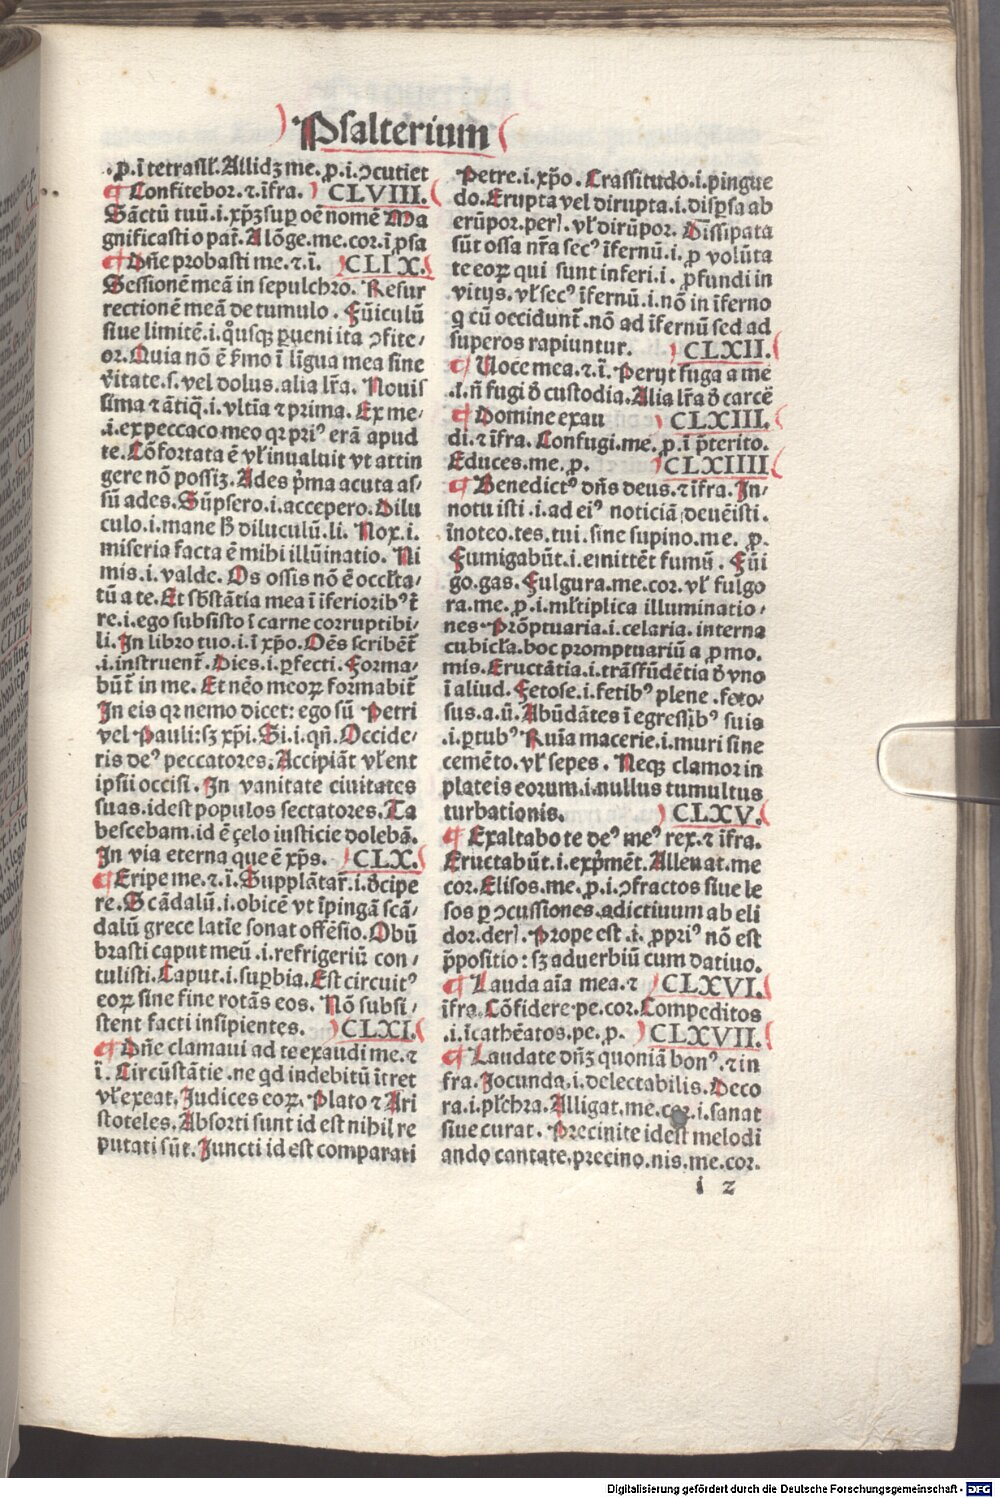 Psalterium
.p. ī tetrasił. Allidꝫ me. p. i. ↄcutiet
¶ Confitebor. ⁊ īfra. CLVIII.
Sāctū tuū. i. xp̄ꝫ suꝑ oē nomē Ma
gnificasti o pat̄. A lōge. me. cor. ī psa
¶ Dn̄e probasti me. ⁊. ī. CLIX.
Sessionē meā in sepulchro. Resur
rectionē meā de tumulo. Fūiculū
siue limitē. i. q̊usqꝫ ꝑueni ita ↄfite/
or. Quia nō ē ẜmo ī līgua mea sine
v̄itate. s. vel dolus. alia lr̄a. Nouis
sima ⁊ ātiq̄. i. vltīa ⁊ prima. Ex me/
.i. ex peccaco meo qꝛ priꝰ erā apud
te. Cōfortata ē vł inualuit vt attin
gere nō possiꝫ. Ades p̄ma acuta as/
sū ades. Sūpsero. i. accepero. Dilu
culo. i. mane ꝩ diluculū. li. Nox. i.
miseria facta ē mihi illūinatio. Ni
mis. i. valde. Os ossis nō ē occłta/
tū a te. Et sb̄stātia mea ī iferioribꝰ t̄
re. i. ego subsisto ī carne corruptibi/
li. In libro tuo. i. ī xp̄o. Oēs scribēt̄
.i. instruent̄. Dies. i. ꝑfecti. Forma/
būt̄ in me. Et nēo meoꝝ formabit̄
In eis qꝛ nemo dicet: ego sū Petri
vel Pauli: sꝫ xp̄i. Si. i. qn̄. Occide/
ris deꝰ peccatores. Accipiāt vł ent
ipsii occisi. In vanitate ciuitates
suas. idest populos sectatores. Ta
bescebam. id ē çelo iusticie dolebā.
In via eterna que ē xp̄s. CLX.
¶ Eripe me. ⁊. ī. Supplātar̄. i. d̄cipe
re. Scādalū. i. obicē vt īpingā scā/
dalū grece latīe sonat offēsio. Obū
brasti caput meū. i. refrigeriū con/
tulisti. Caput. i. suꝑbia. Est circuitꝰ
eoꝝ sine fine rotās eos. Nō subsi/
stent facti insipientes. CLXI.
¶ Dn̄e clamaui ad te exaudi me. ⁊
ī. Circūstātie. ne qd indebitū ītret
vł exeat. Judices eoꝝ. Plato ⁊ Ari
stoteles. Absorti sunt id est nihil re
putati sūt. Juncti id est comparati
Petre. i. xp̄o. Crassitudo. i. pingue
do. Erupta vel dirupta. i. disꝑsa ab
erūpor. perl. vł dirūpor. Dissipata
sūt ossa nr̄a secꝰ īfernū. i. ꝓ volūta
te eoꝝ qui sunt inferi. i. ꝓfundi in
vitijs. vł secꝰ īfernū. i. nō in īferno
q cū occidunt̄. nō ad īfernū sed ad
superos rapiuntur. CLXII.
¶ Uoce mea. ⁊. ī. Perijt fuga a me
.i. n̄ fugi d̄ custodia. Alia lr̄a d̄ carcē
¶ Domine exau CLXIII.
di. ⁊ īfra. Confugi. me. p. ī p̄terito.
Educes. me. p. CLXIIII
¶ Benedictꝰ dn̄s deus. ⁊ īfra. In/
notu isti. i. ad eiꝰ noticiā deuēisti.
īnoteo. tes. tui. sine supino. me. p.
Fumigabūt. i. emittēt fumū. Fūi
go. gas. Fulgura. me. cor. vł fulgo
ra. me. p. i. młtiplica illuminatio/
nes. Prōptuaria. i. celaria. interna
cubicła. hoc promptuariū a promo.
mis. Eructātia. i. trāsfūdētia d̄ vno
ī aliud. Fetose. i. fetibꝰ plene. feto/
sus. a. ū. Abūdātes ī egressibꝰ suis
.i. ꝑtubꝰ Ruīa macerie. i. muri sine
cemēto. vł sepes. Neqꝫ clamor in
plateis eorum. i. nullus tumultus
turbationis. CLXV.
¶ Exaltabo te deꝰ meꝰ rex. ⁊ īfra.
Eructabūt. i. exp̄mēt. Alleuat. me
cor. Elisos. me. p. i. ↄfractos siue le
sos ꝑ ↄcussiones. adictiuum ab eli
dor. derl. Prope est .i. ꝓpriꝰ nō est
p̄positio: sꝫ aduerbiū cum datiuo.
¶ Lauda aīa mea. ⁊ CLXVI.
īfra. Cōfidere. pe. cor. Compeditos
.i. īcathēatos. pe. p. CLXVII.
¶ Laudate dn̄ꝫ quoniā bonꝰ. ⁊ in
fra. Jocunda. i. delectabilis. Deco
ra. i. płchra. Alligat. me. cor. i. sanat
siue curat. Precinite idest melodi
ando cantate. precino. nis. me. cor.
i 2
Digitalisierung gefördert durch die Deutsche Forschungsgemeinschaft - DFG